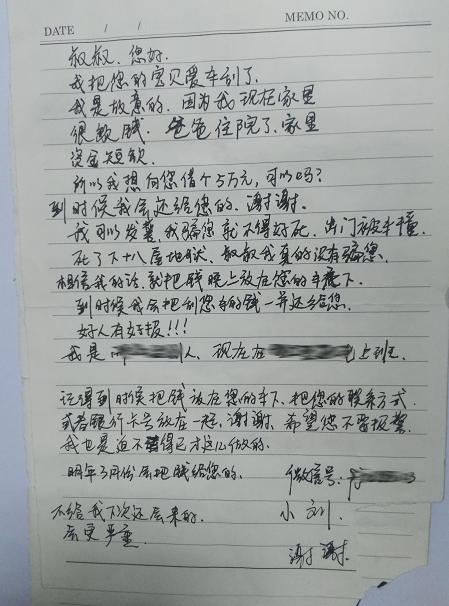 DATE / / MEMO NO.
叔叔.您好.
我把您的宝贝爱车刮了.
我是故意的.因为我现在家里
很缺钱.爸爸住院了.家里
资金短缺.
所以我想向您借个5万元,可以吗?
到时候我会还给您的.谢谢.
我可以发誓,我骗您就不得好死.出门被车撞.
死了下十八层地狱.叔叔我真的没有骗您.
相信我的话.就把钱晚上放在您的车底下.
到时候我会把刮您车的钱一并还给您.
好人有好报!!!
我是 人、现在在 上班.
记得到时候把钱放在您的车下、把您的联系方式
或者银行卡号放在一起,谢谢.希望您不要报警.
我也是迫不得已才这么做的.
明年3月份会把钱给您的.
微信号:
不给我下次还会来的.
小刘.
会更严重.
谢谢.